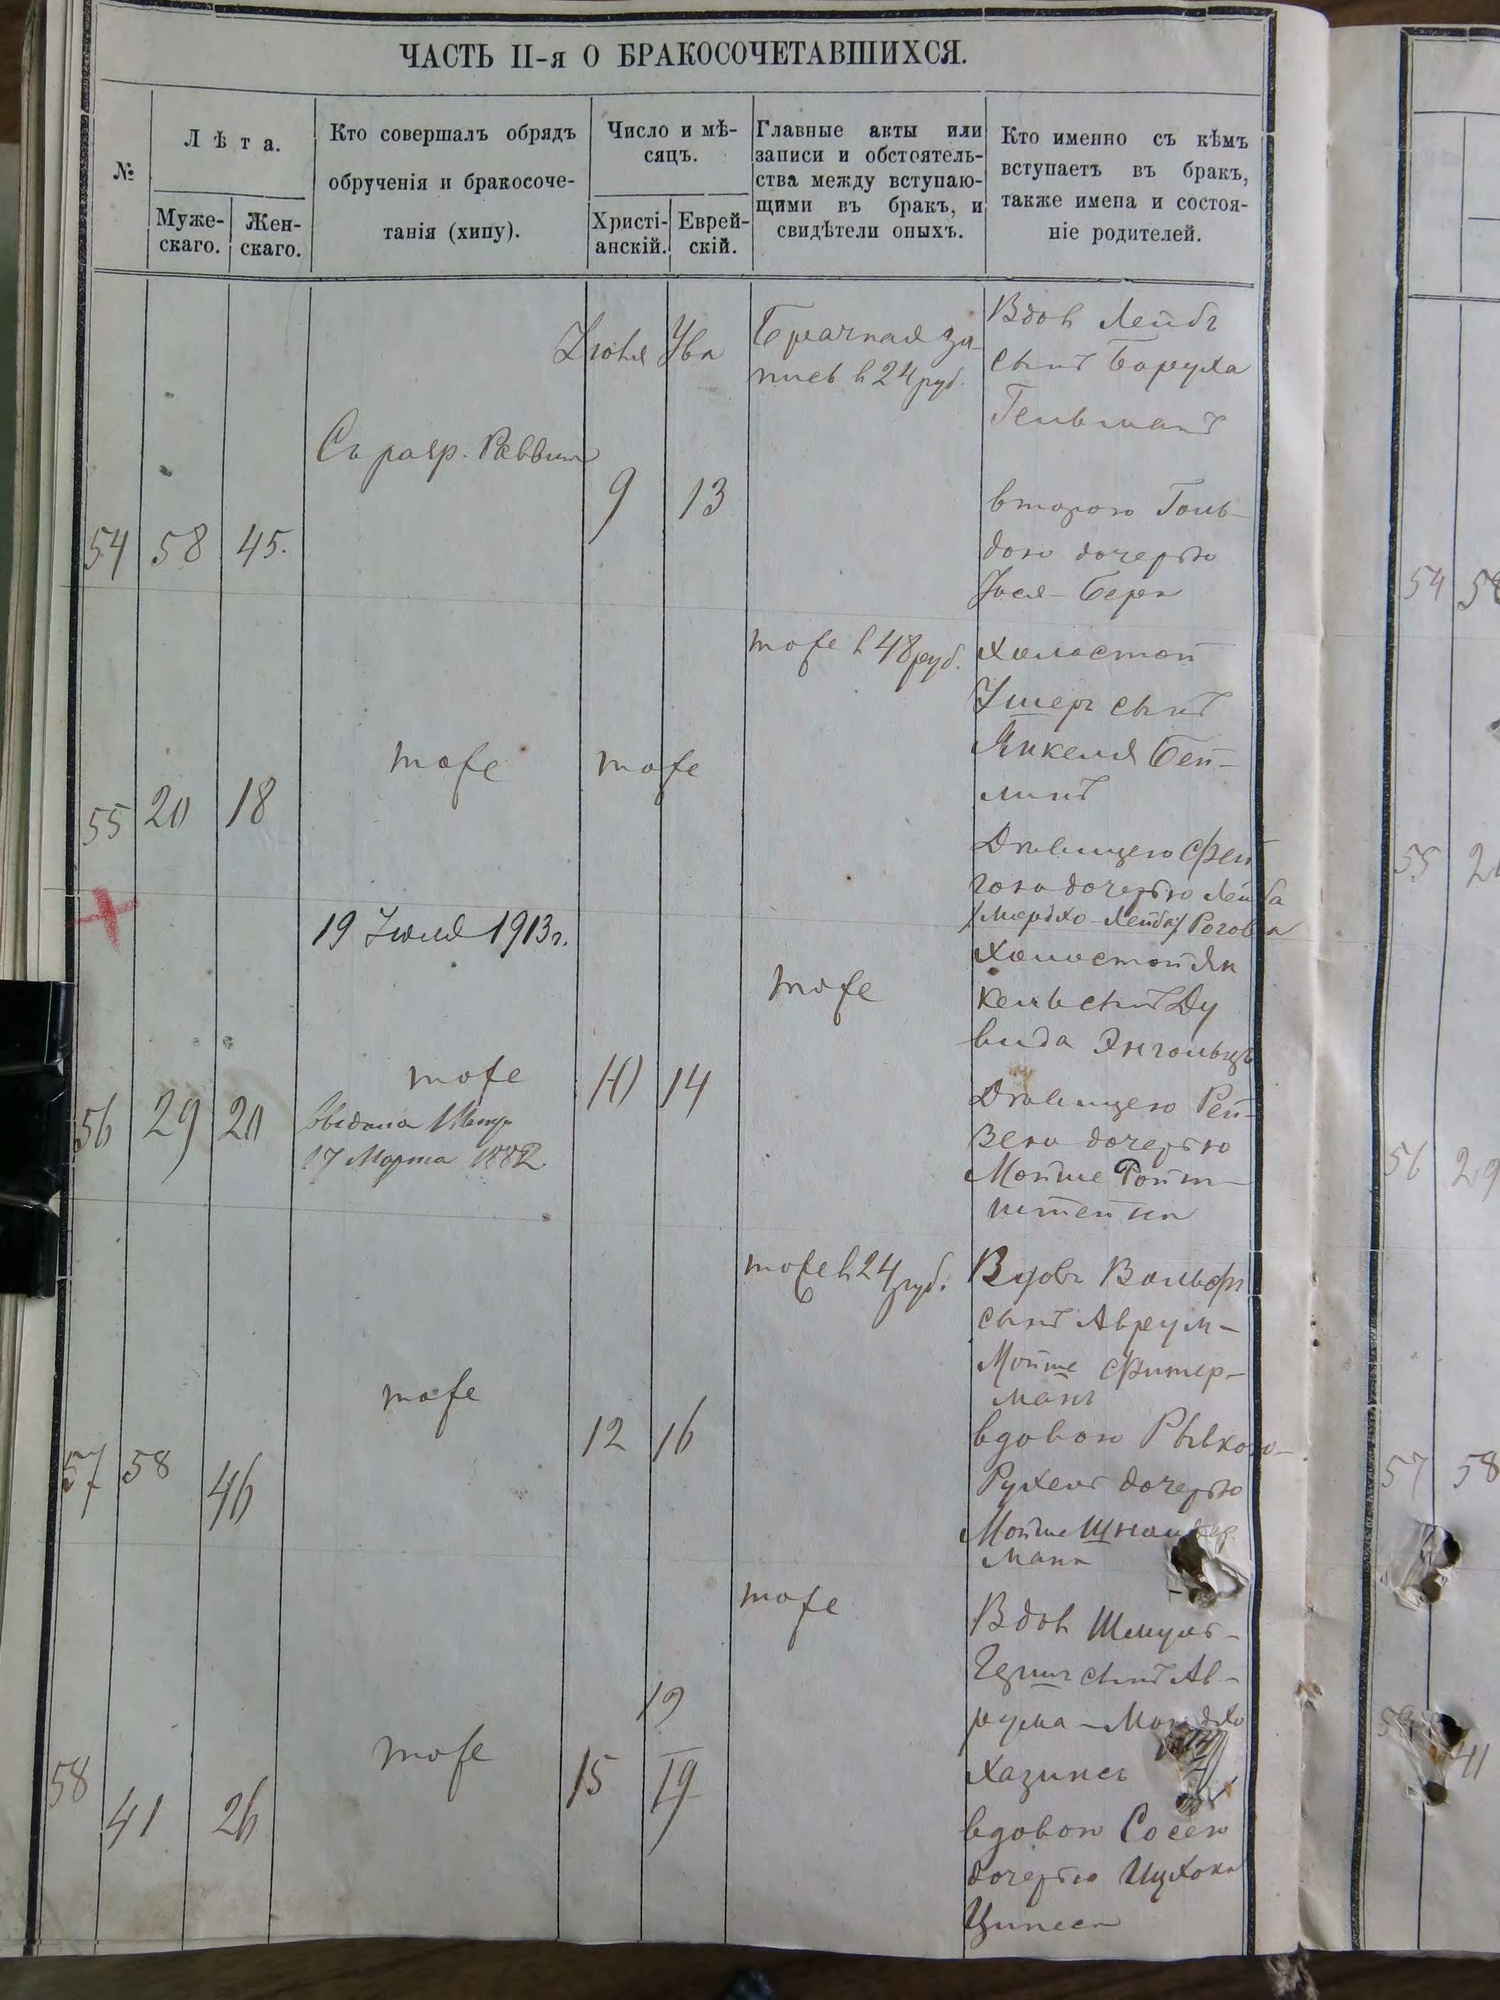 ЧАСТЬ II-я О БРАКОСОЧЕТАВШИХСЯ.
№
Лѣта.
Муже-
скаго.
Жен-
скаго.
Кто совершалъ обрядъ
обрученія и бракосоче-
танія (хипу).
Число и мѣ-
сяцъ.
Христі-
анскій.
Еврей-
скій.
Главные акты или
записи и обстоятель-
ства между вступаю-
щими въ бракъ, и
свидѣтели оныхъ.
Кто именно съ кѣмъ
вступаетъ въ бракъ,
также имена и состоя-
ніе родителей.
54 58 45.
Съ разр. Раввина
9 13
Брачная за-
пись в 24 руб.
Вдов Лейбъ
сынъ Боруха
Гельманъ
второю Голь-
дою дочерью
Іося-Бера
55 20 18
тоже
тоже
тоже в 48 руб.
холостой
Ушеръ сынъ
Янкеля Бей-
линъ
Дѣвицею Фей
гою дочерью Лейба
/Мордхо-Лейба/
19 Іюля 1913 г.
56 29 20
тоже
17 Марта 1882.
10 14
тоже
холостой Ян
кель сынъ Ду
вида
Дѣвицею Рей-
зею дочерью
Мойше Ройт-
штейна
57 58 46
тоже
12 16
тоже в 24 руб.
Вдовъ Вольфъ
сынъ Аврум-
Мойше Фитер-
манъ
вдовою Рывкою-
Рухель дочерью
Мойше
мана
58 41 26
тоже
15 19
19
тоже
Вдов Шмуль-
Гершъ сынъ Ав-
рума-Мордхо
Хазинъ
вдовою Сосею
дочерью Ицхока